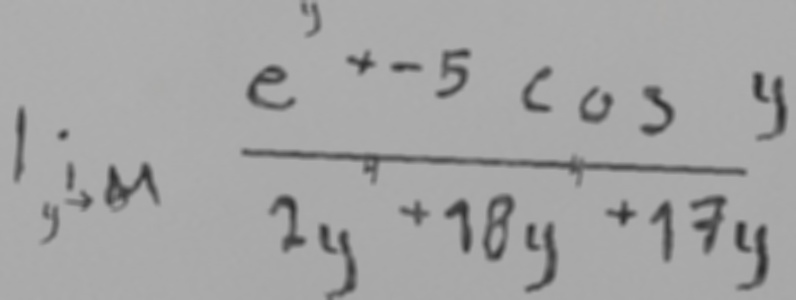 lim y→1 (e^y + -5 cos y) / (2y^4 + 18y^4 + 17y)